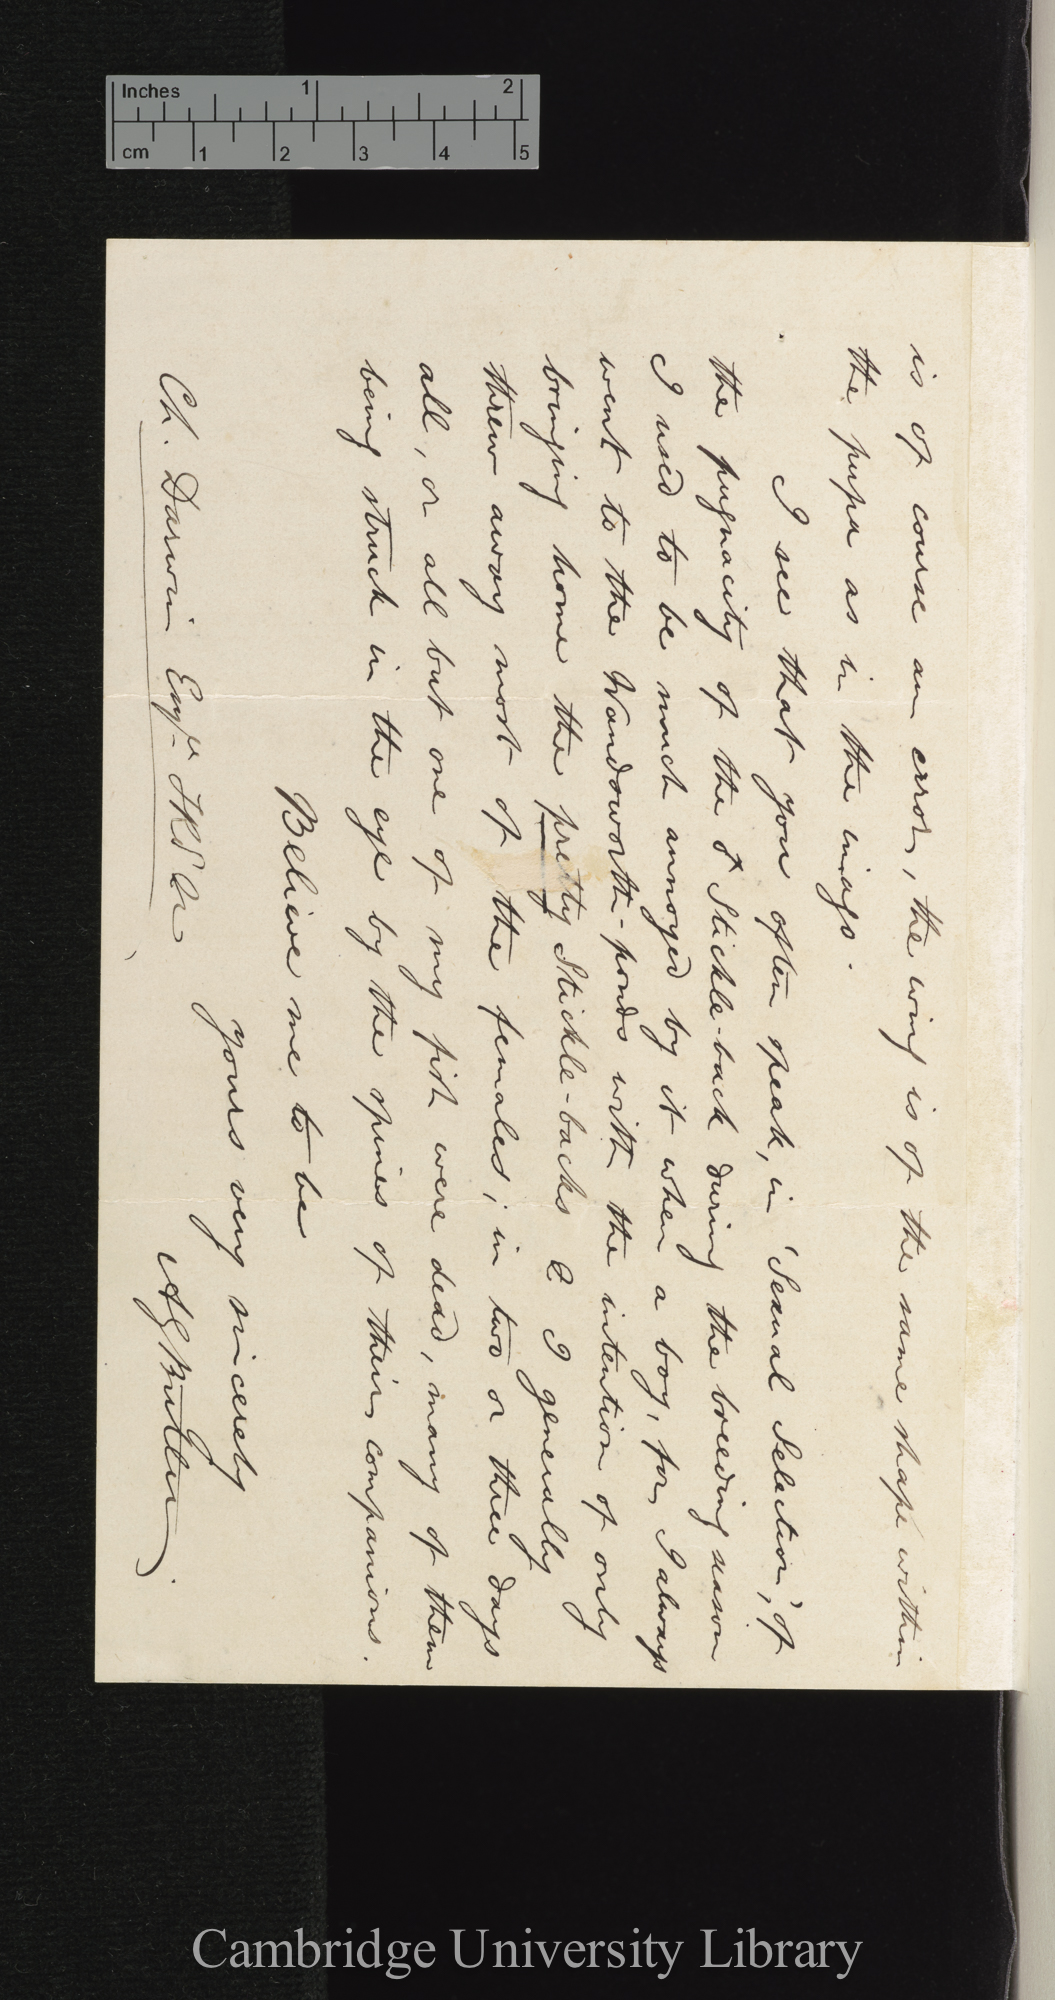 Inches 1 2
cm 1 2 3 4 5
is of course an error, the wing is of the same shape within
the pupa as in the imago.
I see that you often speak, in 'Sexual Selection', of
the pugnacity of the ♂ Stickle-back during the breeding season
I used to be much annoyed by it when a boy, for, I always
went to the Wandsworth-ponds with the intention of only
bringing home the pretty Stickle-backs & I generally
threw away most of the females; in two or three days
all, or all but one of my fish were dead, many of them
being struck in the eye by the spines of their companions.
Believe me to be
yours very sincerely
AGButler
Ch. Darwin Esqre FRS &c
Cambridge University Library